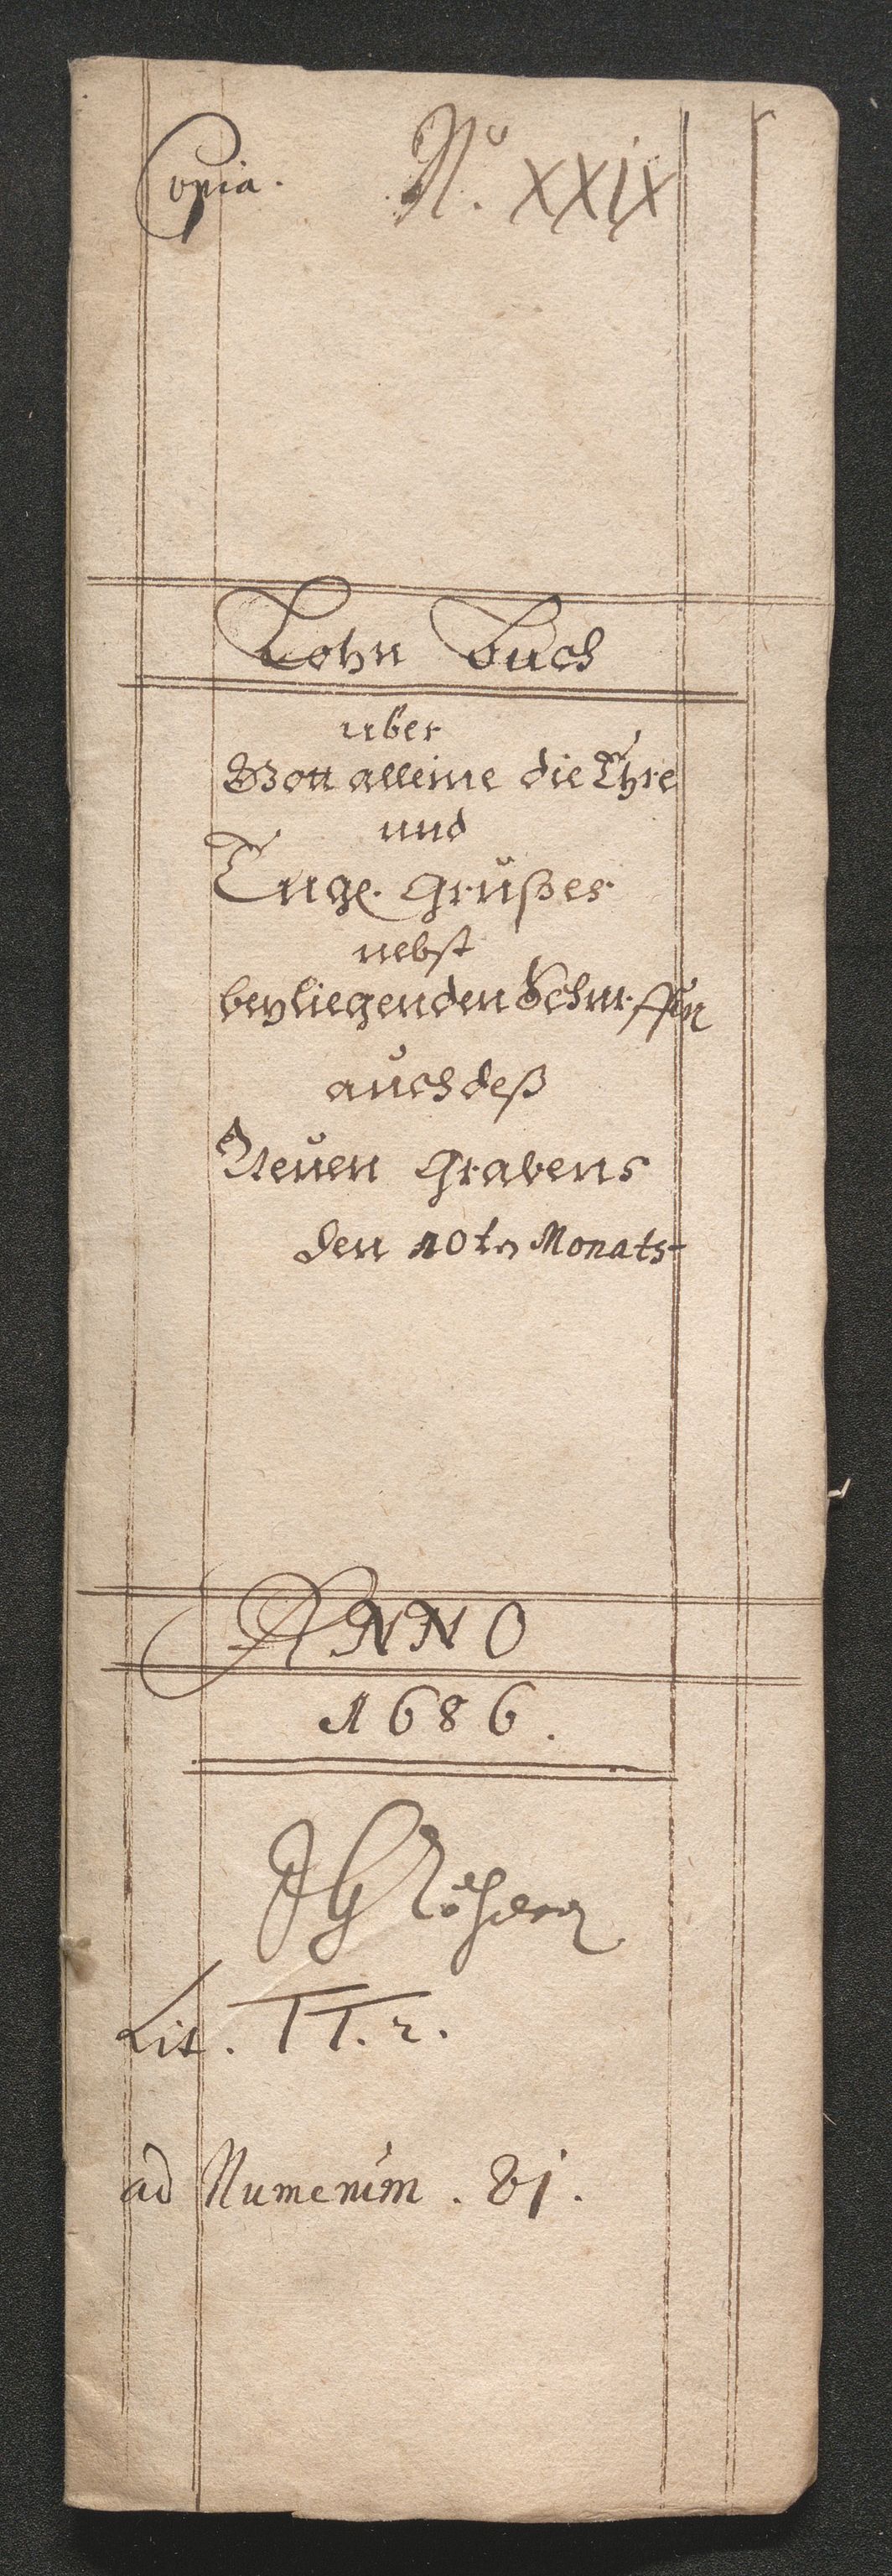 Copia. No. XXIX
Lohn Buch
uber
Gott alleine die Ehre
und
Engl. Grußes
nebst
beyliegenden Schurffen
auch deß
Neuen Grabens
den 10ten Monats
ANNO
1686.
Lit. TT. 2.
ad Numerum. 81.